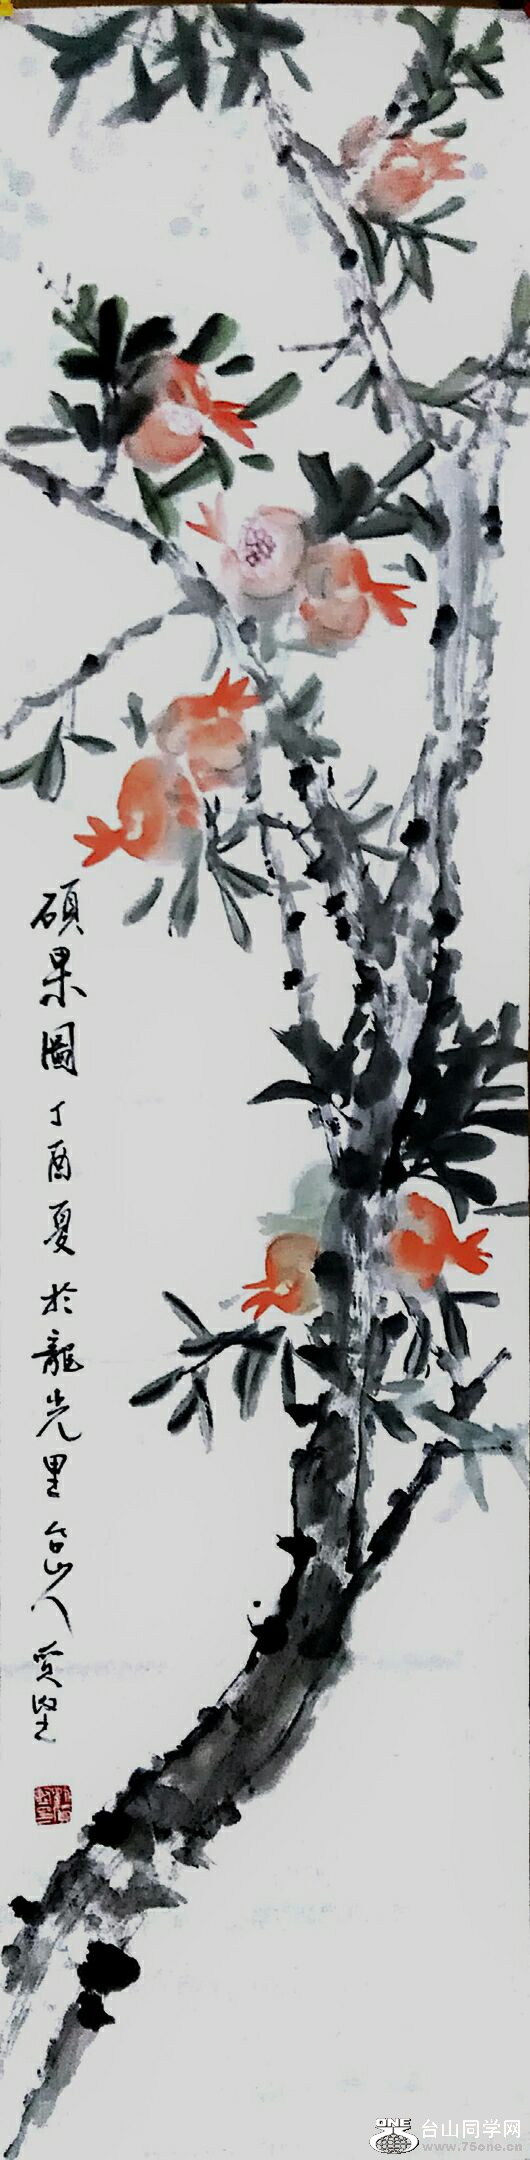 硕果圖丁酉夏於龍光里台山人贤坚
ONE
台山同学网
www.75one.cn